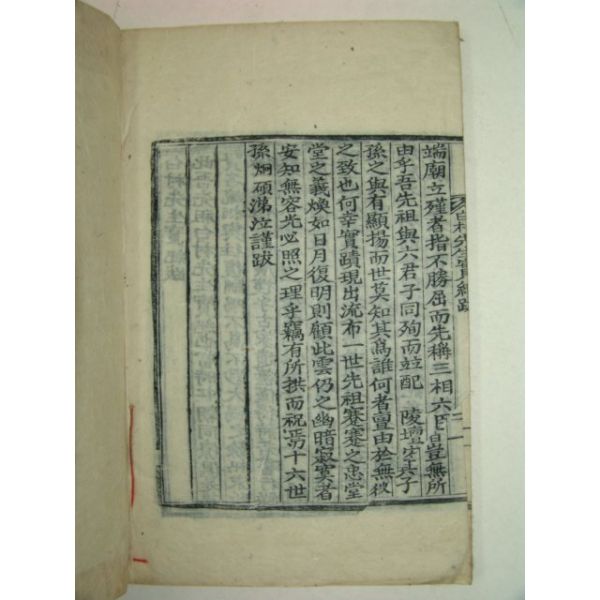 端廟立殣者指不勝屈而先稱三相六臣豈無所
由乎吾先祖與六君子同殉而竝配 陵壇宜其子
孫之與有顯揚而世莫知其爲誰何者亶由於無徴
之致也何幸實蹟現出流布一世先祖蹇蹇之忠堂
堂之義煥如日月復明則顧此雲仍之幽暗寂寞者
安知無容光必照之理乎竊有所拱而祝焉十六世
孫炯碩涕泣謹跋
白村先生實紀跋